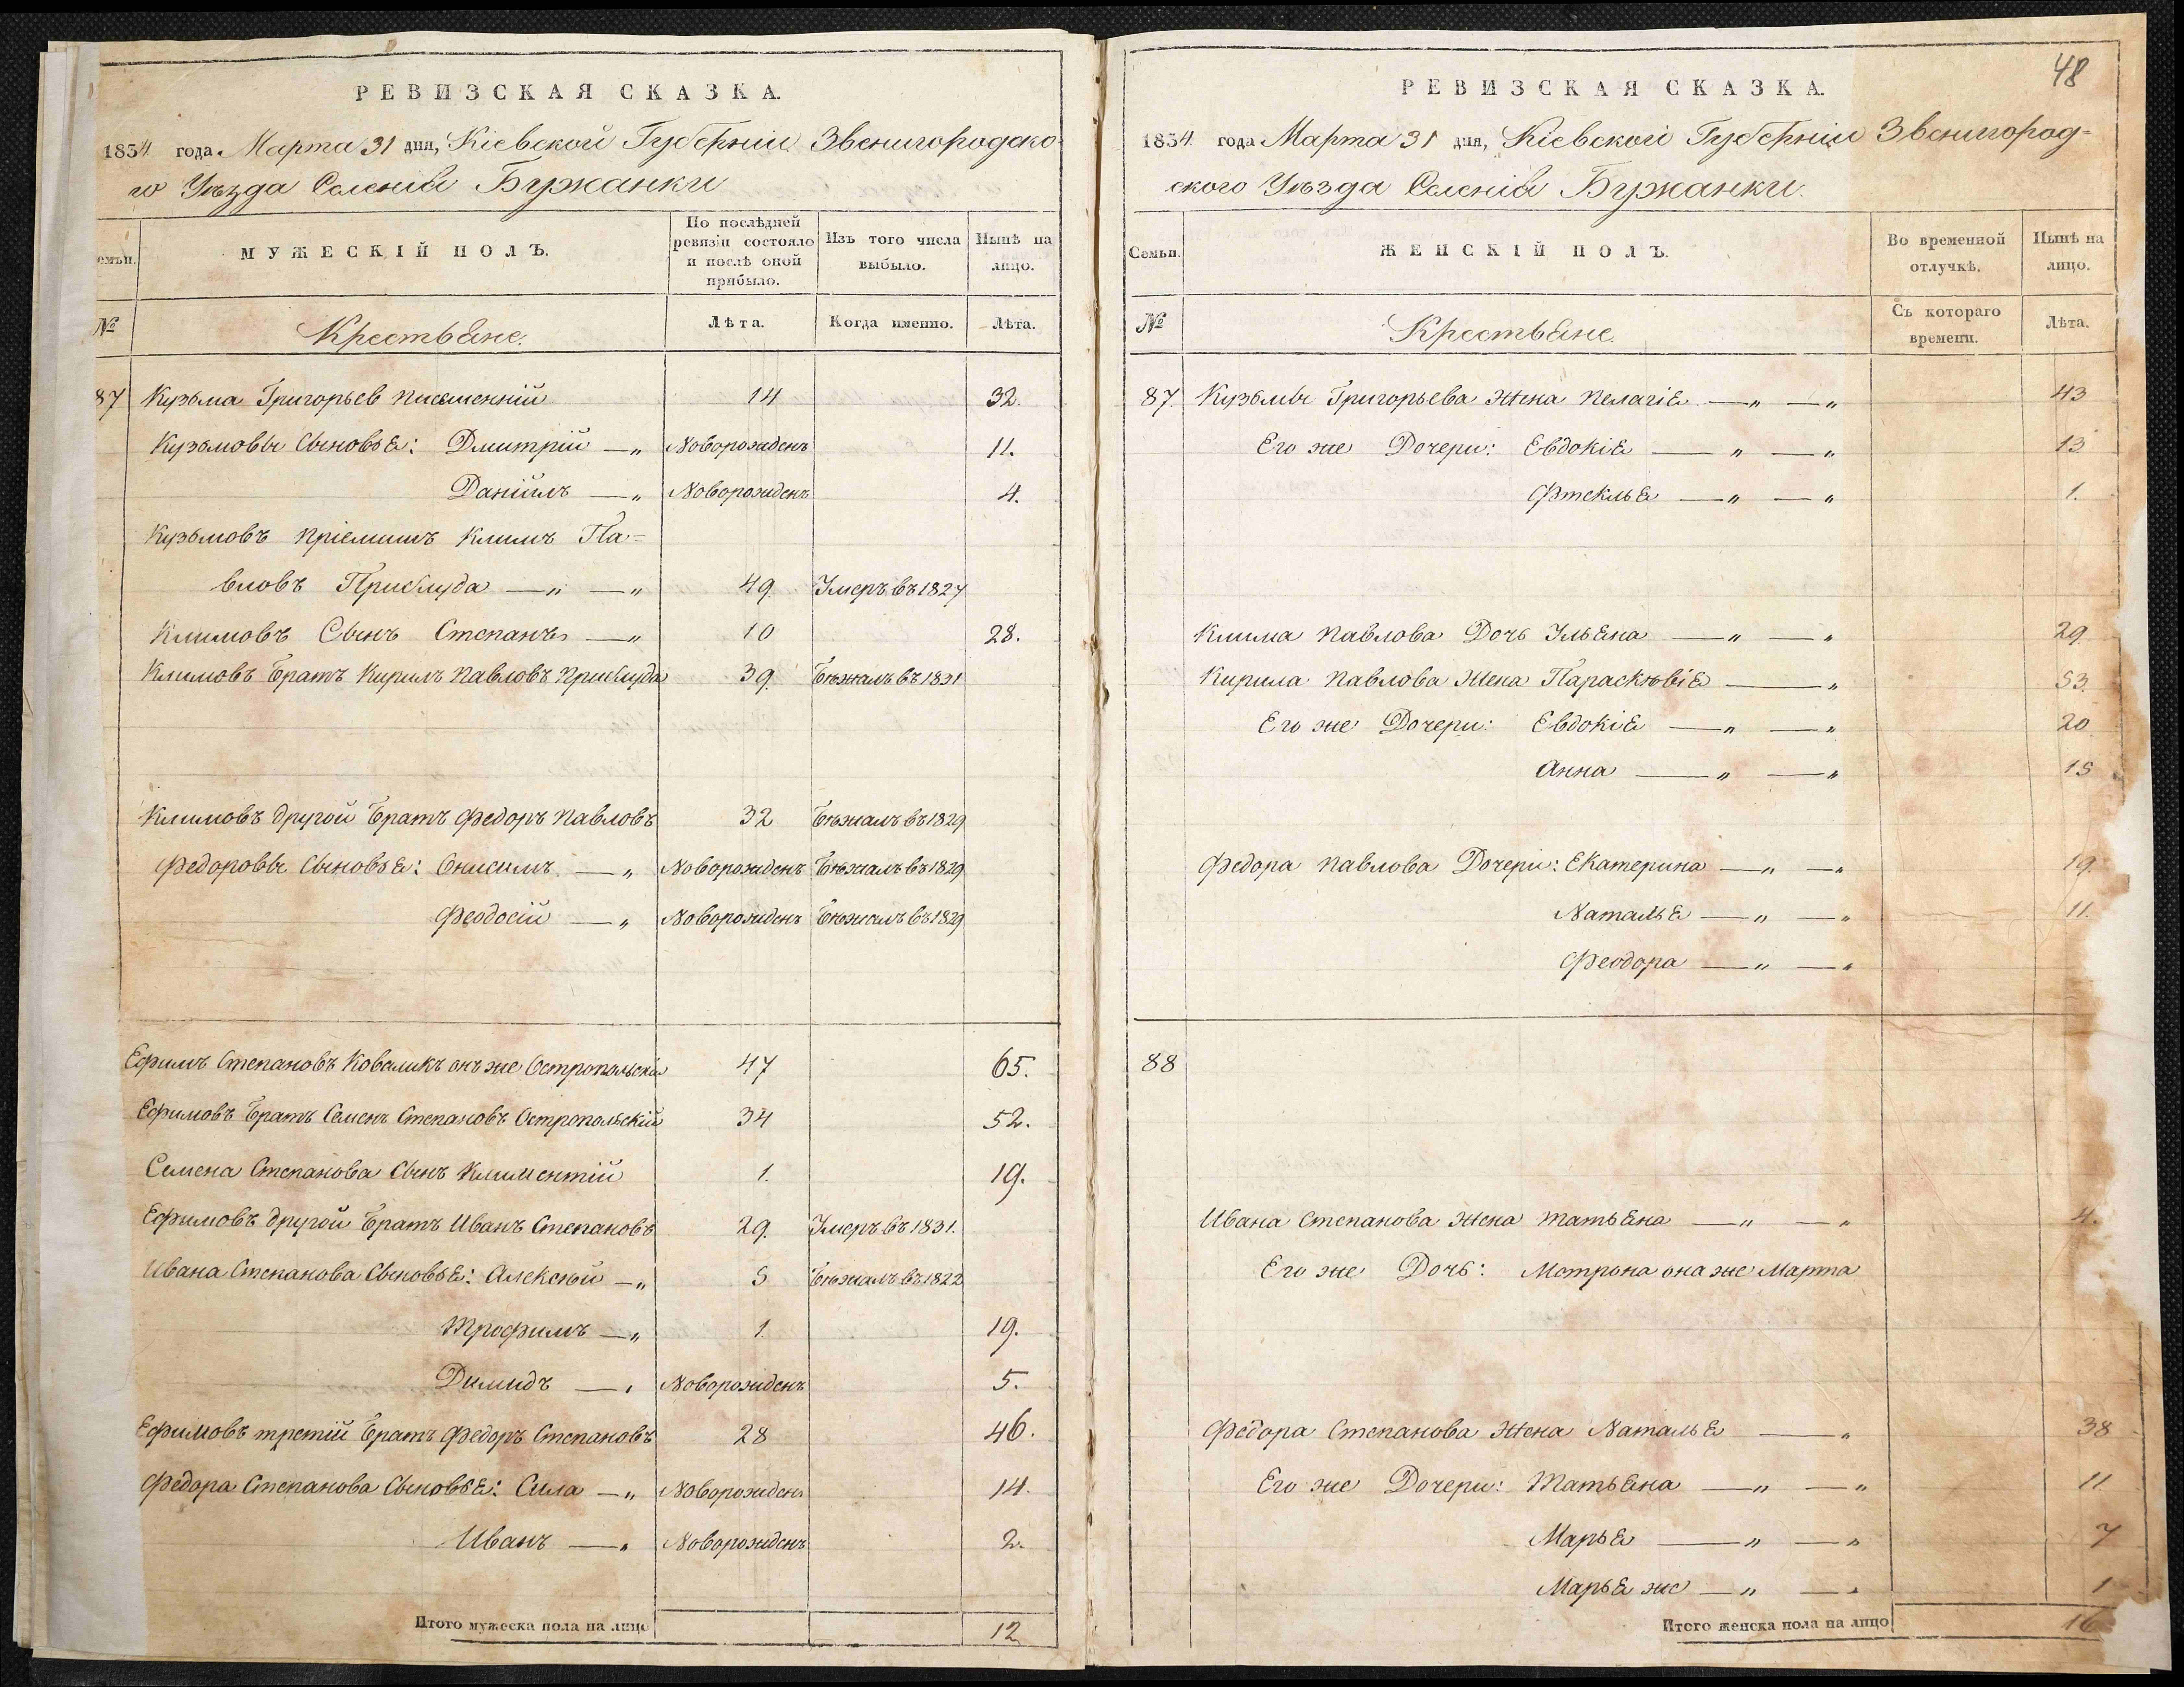 РЕВИЗСКАЯ СКАЗКА.
1834 года Марта 31 дня, Кіевской Губерніи Звенигородско-
го Уѣзда Селенія Бужанки
емьи.
МУЖЕСКІЙ ПОЛЪ.
По послѣдней ревизіи состояло и послѣ оной прибыло.
Изъ того числа выбыло.
Нынѣ на лицо.
№
Крестьяне.
Лѣта.
Когда именно.
Лѣта.
87 Кузьма Григорьев Писменній 14 32.
Кузьмовы Сыновья: Дмитрій — „ Новорожденъ 11.
Даніилъ — „ Новорожденъ 4.
Кузьмовъ Пріемышъ Климъ Па-
вловъ Приблуда — „ — „ 49. Умеръ въ 1827
Климовъ Сынъ Степанъ — „ 10 28.
Климовъ Братъ Кирилъ Павловъ Приблуда 39. Бѣжалъ въ 1831
Климовъ другой Братъ Федоръ Павловъ 32 Бѣжалъ въ 1829
Федоровы Сыновья: Онисимъ — „ Новорожденъ Бѣжалъ въ 1829
Феодосій — „ Новорожденъ Бѣжалъ въ 1829
Ефимъ Степановъ Коваликъ онъ же Остропольскій 47 65.
Ефимовъ Братъ Семенъ Степановъ Остропольскій 34 52.
Семена Степанова Сынъ Климентій 1. 19.
Ефимовъ другой Братъ Иванъ Степановъ 29. Умеръ въ 1831.
Ивана Степанова Сыновья: Алексѣй — „ 5 Бѣжалъ въ 1822
Трофимъ — „ 1. 19.
Димидъ — „ Новорожденъ 5.
Ефимовъ третій Братъ Федоръ Степановъ 28 46.
Федора Степанова Сыновья: Сила — „ Новорожденъ 14.
Иванъ — „ Новорожденъ 2.
Итого мужеска пола на лицо 12
48
РЕВИЗСКАЯ СКАЗКА.
1834 года Марта 31 дня, Кіевской Губерніи Звенигород-
ского Уѣзда Селенія Бужанки.
Семьи.
ЖЕНСКІЙ ПОЛЪ.
Во временной отлучкѣ.
Нынѣ на лицо.
№
Крестьяне.
Съ котораго времени.
Лѣта.
87. Кузьмы Григорьева Жена Пелагія — „ — „ 43
Его же Дочери: Евдокія — „ — „ 13
Фтеклья — „ — „ 1.
Клима Павлова Дочь Ульяна — „ — „ 29.
Кирила Павлова Жена Параскѣвія — „ 53.
Его же Дочери: Евдокія — „ — „ 20
Анна — „ — „ 15
Федора Павлова Дочери: Екатерина — „ — „ 19.
Наталья — „ — „ 11.
Феодора — „ — „
88
Ивана Степанова Жена Татьяна — „ — „
Его же Дочь: Мотрона она же Марта
Федора Степанова Жена Наталья — „ 38
Его же Дочери: Татьяна — „ — „ 11
Марья — „ — „ 7
Марья же — „ — „ 1
Итого женска пола на лицо 16